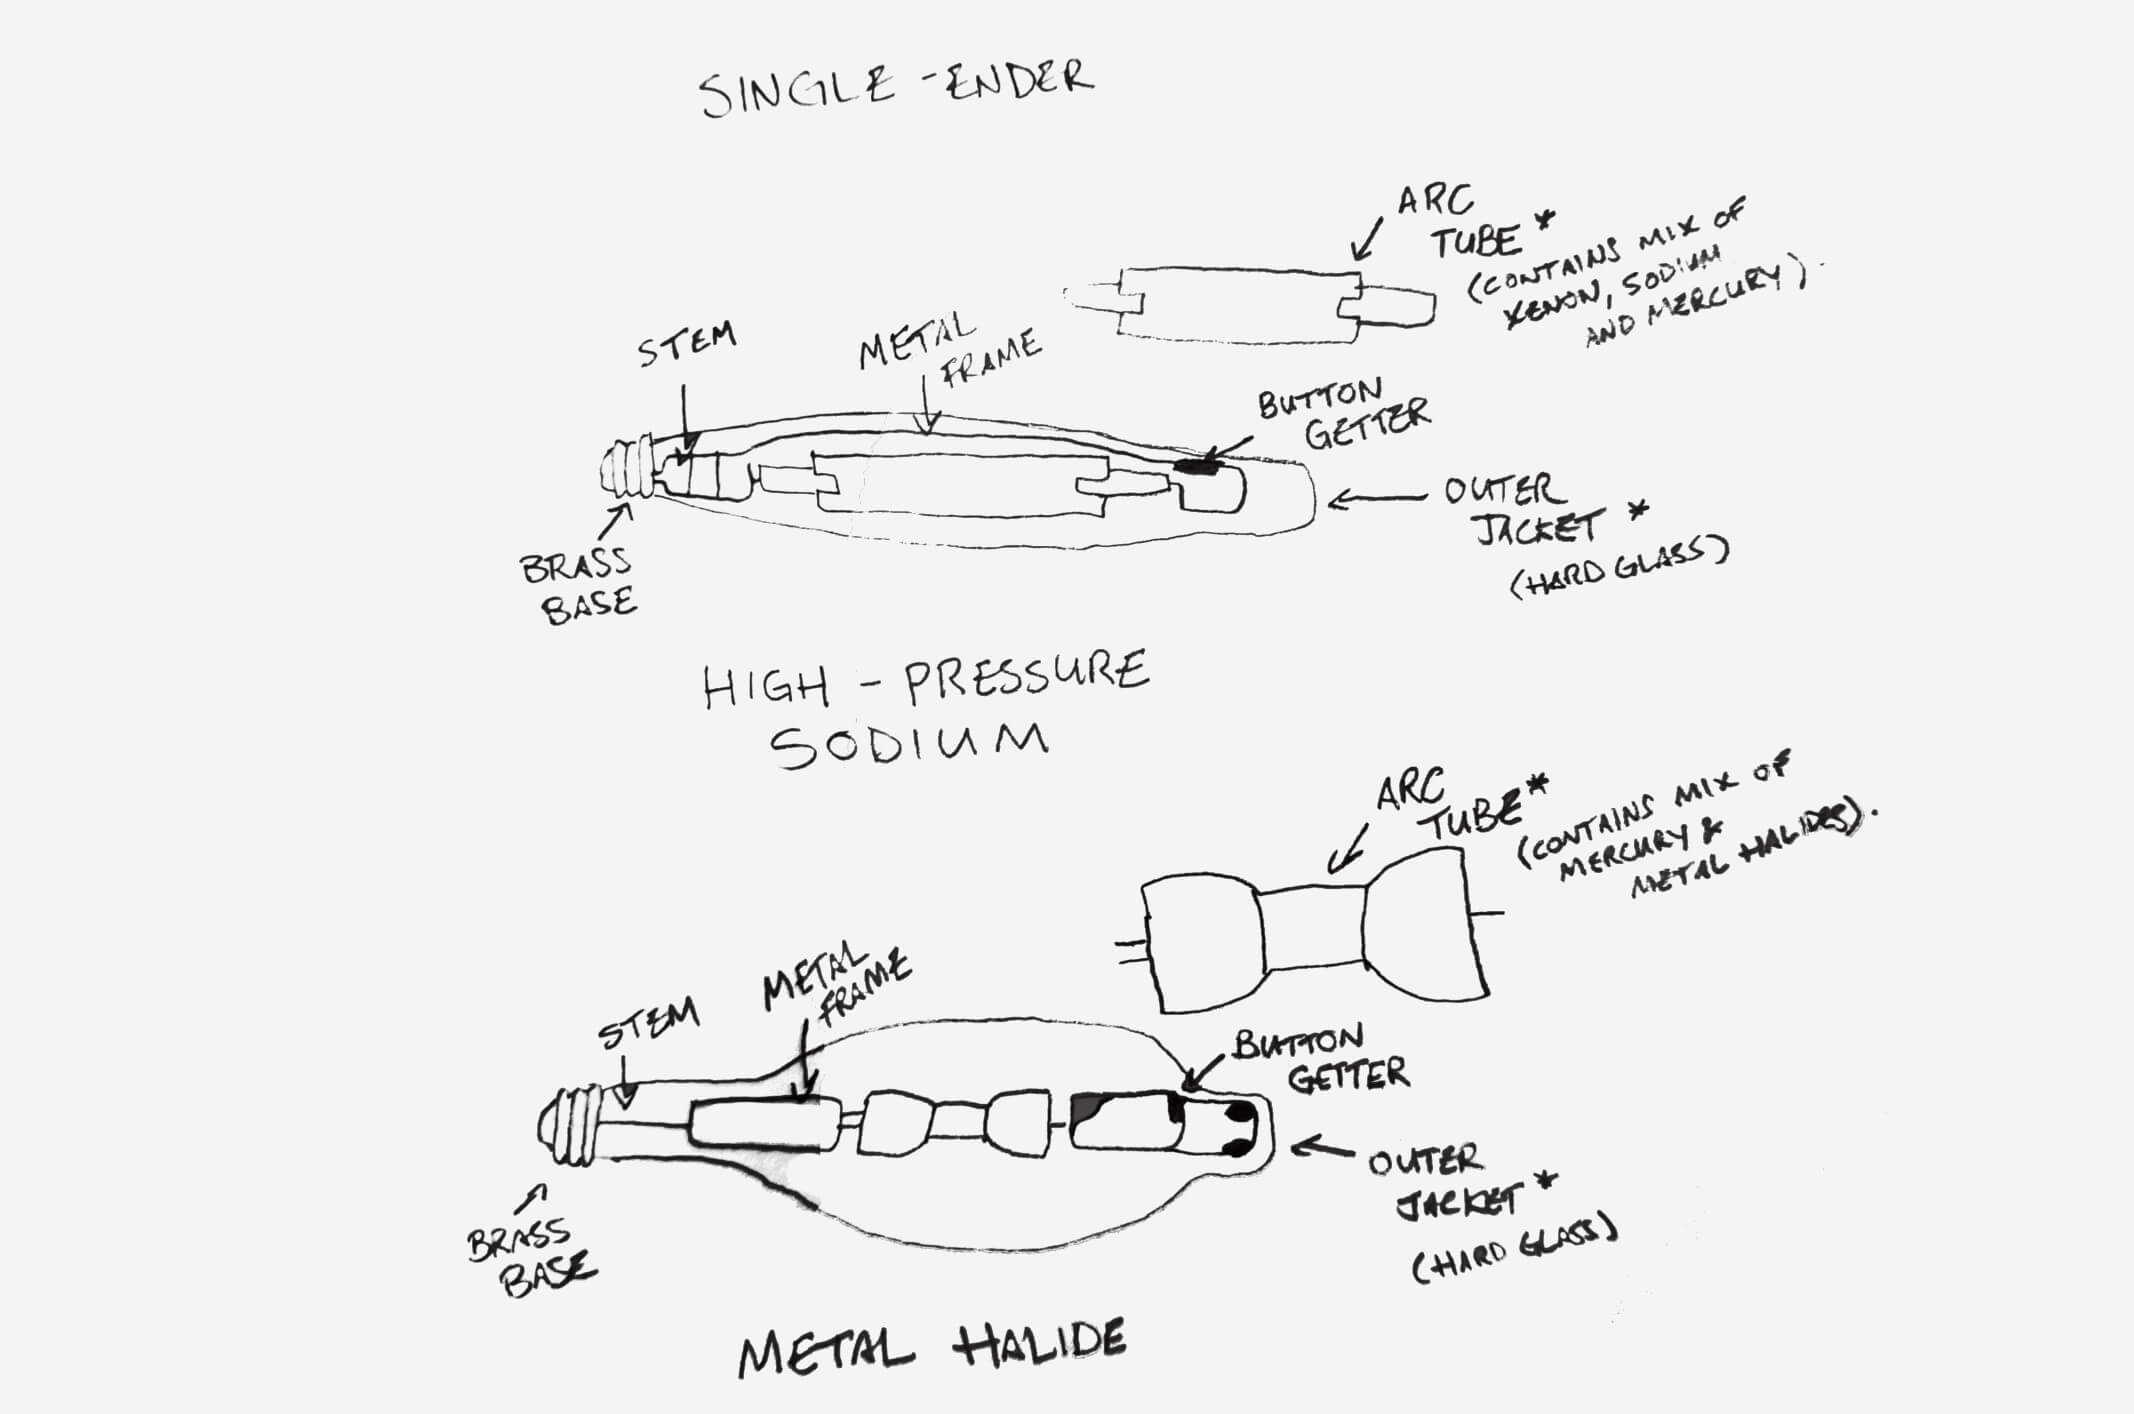 SINGLE-ENDER
ARC
TUBE *
(CONTAINS MIX OF
XENON, SODIUM
AND MERCURY).
STEM
METAL
FRAME
BUTTON
GETTER
OUTER
JACKET *
(HARD GLASS)
BRASS
BASE
HIGH-PRESSURE
SODIUM
ARC
TUBE*
(CONTAINS MIX OF
MERCURY &
METAL HALIDES).
METAL
FRAME
STEM
BUTTON
GETTER
OUTER
JACKET *
(HARD GLASS)
BRASS
BASE
METAL HALIDE